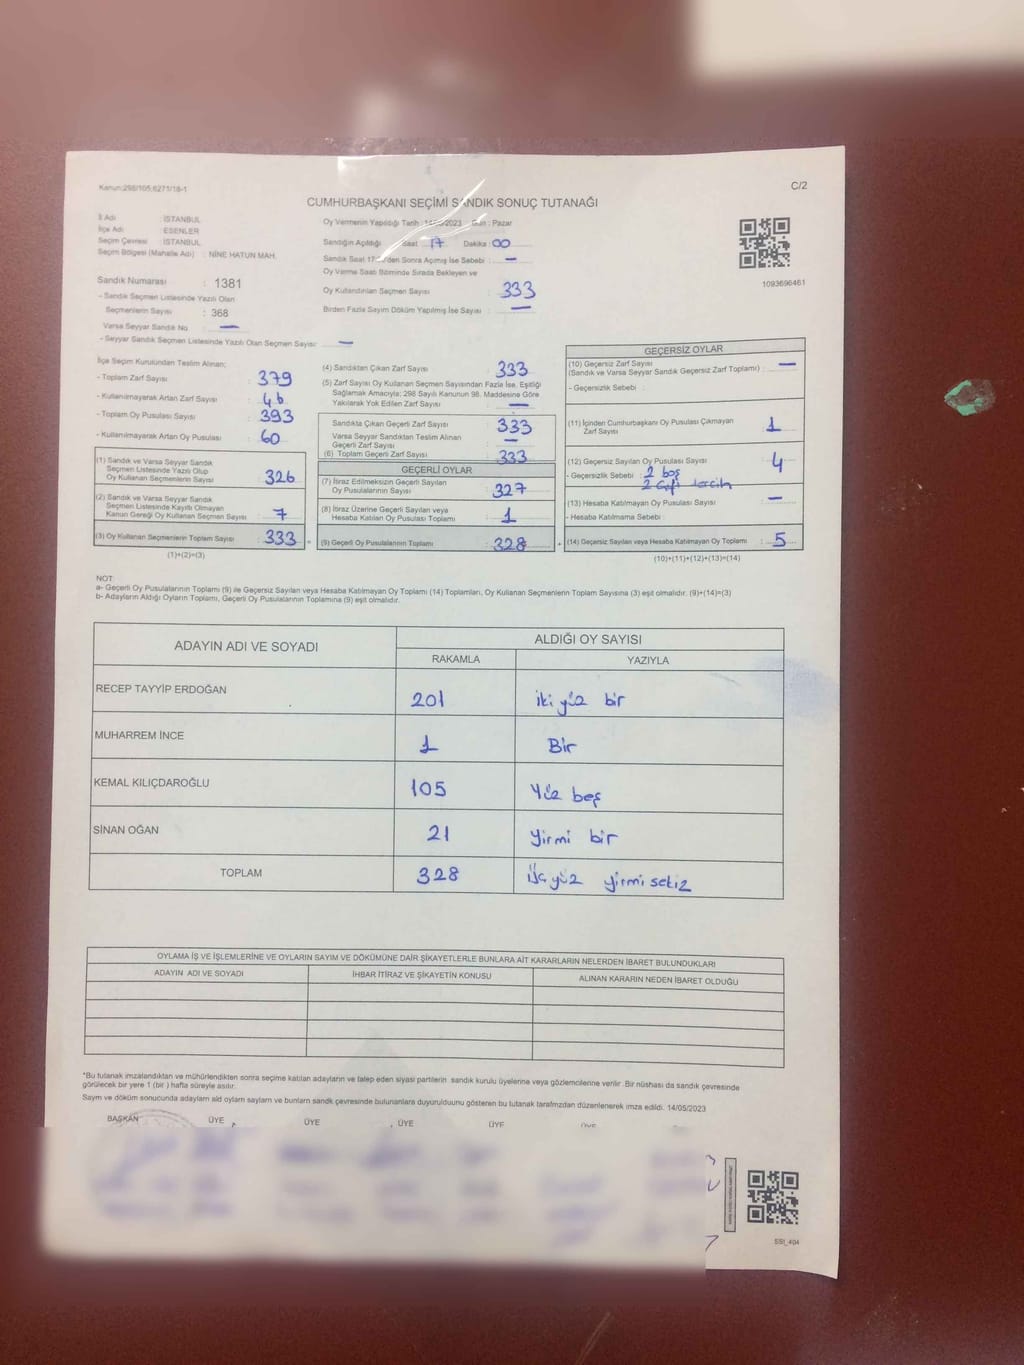 Kanun:298/105;6271/18-1
C/2
CUMHURBAŞKANI SEÇİMİ SANDIK SONUÇ TUTANAĞI
İl Adı : İSTANBUL
İlçe Adı : ESENLER
Seçim Çevresi : İSTANBUL
Seçim Bölgesi (Mahalle Adı) : NİNE HATUN MAH.
Sandık Numarası : 1381
- Sandık Seçmen Listesinde Yazılı Olan
Seçmenlerin Sayısı : 368
Varsa Seyyar Sandık No : —
- Seyyar Sandık Seçmen Listesinde Yazılı Olan Seçmen Sayısı: —
Oy Vermenin Yapıldığı Tarih : 14/05/2023 Gün : Pazar
Sandığın Açıldığı Saat 17 Dakika : 00
Sandık Saat 17:00'den Sonra Açılmış İse Sebebi : —
Oy Verme Saati Bitiminde Sırada Bekleyen ve
Oy Kullandırılan Seçmen Sayısı : 333
Birden Fazla Sayım Döküm Yapılmış İse Sayısı : —
1093696461
İlçe Seçim Kurulundan Teslim Alınan;
- Toplam Zarf Sayısı : 379
- Kullanılmayarak Artan Zarf Sayısı : 46
- Toplam Oy Pusulası Sayısı : 393
- Kullanılmayarak Artan Oy Pusulası : 60
(1) Sandık ve Varsa Seyyar Sandık
Seçmen Listesinde Yazılı Olup
Oy Kullanan Seçmenlerin Sayısı : 326
(2) Sandık ve Varsa Seyyar Sandık
Seçmen Listesinde Kayıtlı Olmayan
Kanun Gereği Oy Kullanan Seçmen Sayısı : 7
(3) Oy Kullanan Seçmenlerin Toplam Sayısı : 333
(1)+(2)=(3)
(4) Sandıktan Çıkan Zarf Sayısı : 333
(5) Zarf Sayısı Oy Kullanan Seçmen Sayısından Fazla İse, Eşitliği
Sağlamak Amacıyla; 298 Sayılı Kanunun 98. Maddesine Göre
Yakılarak Yok Edilen Zarf Sayısı : —
Sandıkta Çıkan Geçerli Zarf Sayısı : 333
Varsa Seyyar Sandıktan Teslim Alınan
Geçerli Zarf Sayısı : —
(6) Toplam Geçerli Zarf Sayısı : 333
GEÇERLİ OYLAR
(7) İtiraz Edilmeksizin Geçerli Sayılan
Oy Pusulalarının Sayısı : 327
(8) İtiraz Üzerine Geçerli Sayılan veya
Hesaba Katılan Oy Pusulası Toplamı : 1
= (9) Geçerli Oy Pusulalarının Toplamı : 328
GEÇERSİZ OYLAR
(10) Geçersiz Zarf Sayısı
(Sandık ve Varsa Seyyar Sandık Geçersiz Zarf Toplamı) : —
- Geçersizlik Sebebi :
(11) İçinden Cumhurbaşkanı Oy Pusulası Çıkmayan
Zarf Sayısı : 1
(12) Geçersiz Sayılan Oy Pusulası Sayısı : 4
- Geçersizlik Sebebi : 2 boş
2 Çift tercih
(13) Hesaba Katılmayan Oy Pusulası Sayısı : —
- Hesaba Katılmama Sebebi :
+ (14) Geçersiz Sayılan veya Hesaba Katılmayan Oy Toplamı : 5
(10)+(11)+(12)+(13)=(14)
NOT:
a- Geçerli Oy Pusulalarının Toplamı (9) ile Geçersiz Sayılan veya Hesaba Katılmayan Oy Toplamı (14) Toplamları, Oy Kullanan Seçmenlerin Toplam Sayısına (3) eşit olmalıdır. (9)+(14)=(3)
b- Adayların Aldığı Oyların Toplamı, Geçerli Oy Pusulalarının Toplamına (9) eşit olmalıdır.
ADAYIN ADI VE SOYADI
ALDIĞI OY SAYISI
RAKAMLA YAZIYLA
RECEP TAYYİP ERDOĞAN 201 iki yüz bir
MUHARREM İNCE 1 Bir
KEMAL KILIÇDAROĞLU 105 Yüz beş
SİNAN OĞAN 21 Yirmi bir
TOPLAM 328 üç yüz yirmi sekiz
OYLAMA İŞ VE İŞLEMLERİNE VE OYLARIN SAYIM VE DÖKÜMÜNE DAİR ŞİKAYETLERLE BUNLARA AİT KARARLARIN NELERDEN İBARET BULUNDUKLARI
ADAYIN ADI VE SOYADI İHBAR İTİRAZ VE ŞİKAYETİN KONUSU ALINAN KARARIN NEDEN İBARET OLDUĞU
*Bu tutanak imzalandıktan ve mühürlendikten sonra seçime katılan adayların ve talep eden siyasi partilerin sandık kurulu üyelerine veya gözlemcilerine verilir. Bir nüshası da sandık çevresinde
görülecek bir yere 1 (bir ) hafta süreyle asılır.
Sayım ve döküm sonucunda adayların ald oyların sayıların ve bunların sandk çevresinde bulunanlara duyurulduunu gösteren bu tutanak tarafmzdan düzenlenerek imza edildi. 14/05/2023
BAŞKAN ÜYE ÜYE ÜYE ÜYE
SSI_404